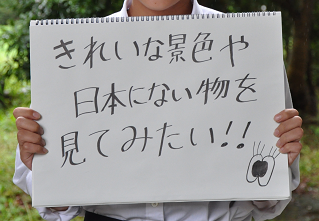 きれいな景色や
日本にない物を
見てみたい!!